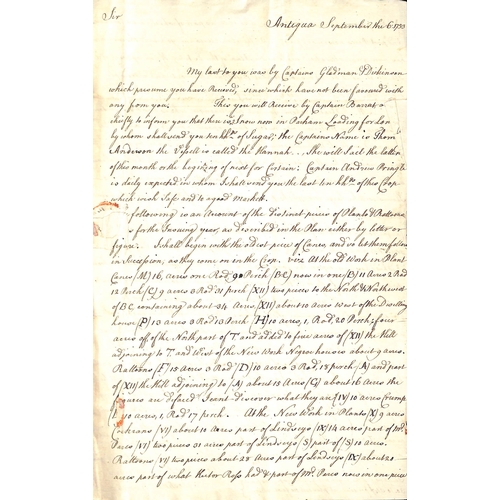 Sir
Antigua September the 6. 1733
My last to you was by Captains Gladman & Dickinson
which presume you have Received, since which have not been favored with
any from you. This you will Receive by Captain Barrat &
chiefly to inform you that there is now in Parham Loading for Lon
by whom shall send you ten hhds. of Sugar; the Captains Name is Thoms.
Anderson the Vessell is called the Hannah. She will Sail the latter
of this month or the begining of next for Certain; Captain Andrew Pringle
is daily expected in whom I shall send you the last ten hhds of this Crop
which wish Safe and to a good Markett.
following is an Amount of the Distinct pieces of Plants & Rattoons
for the Insuing year, as described in the Plan either by letter or
figure. I shall begin with the Oldest piece of Canes, and so let them follow
in Succession, as they come on in the Crop. viz. At the Old Work in Plant
Canes (M) 16 Acres one Rod, 90 Perch (B.C.) now in one (B) 11 Acres 2 Rod
12 Perch (C) 9 acres 3 Rod 31 Perch (XII) two pieces to the North & Northwest
of B.C. containing about 24 Acres (XII) about 10 acres West of the Dwelling
house (P) 13 Acres 3 Rod 13 Perch (H) 10 acres, 1, Rod, 20 Perch; four
acres off of the North part of T. and added to five acres of (XII) the Hill
adjoining to T. and West of the New Work Negroe houses about 9 acres.
Rattoons (F) 15 acres 3 Rod (D) 10 acres 3 Rod, 13 Perch (N) and part
of (XII) the Hill adjoining to (N) about 15 Acres (G) about 16 Acres the
figures are defaced I cant discover what they are (IV) 10 acres
10 acres, 1, Rod, 17 perch. At the New Work in Plants (X) 9 acres
(VI) about 10 acres part of Lindseys (IX) 14 acres part of Mr.
Pares (VI) two pieces 31 acres part of Lindseys (S) part of (S) 10 acres.
Rattoons (VI) two pieces about 23 acres part of Lindseys (IX) about 20
acres part of what Ross had & part of Mr. Pares now in one piece